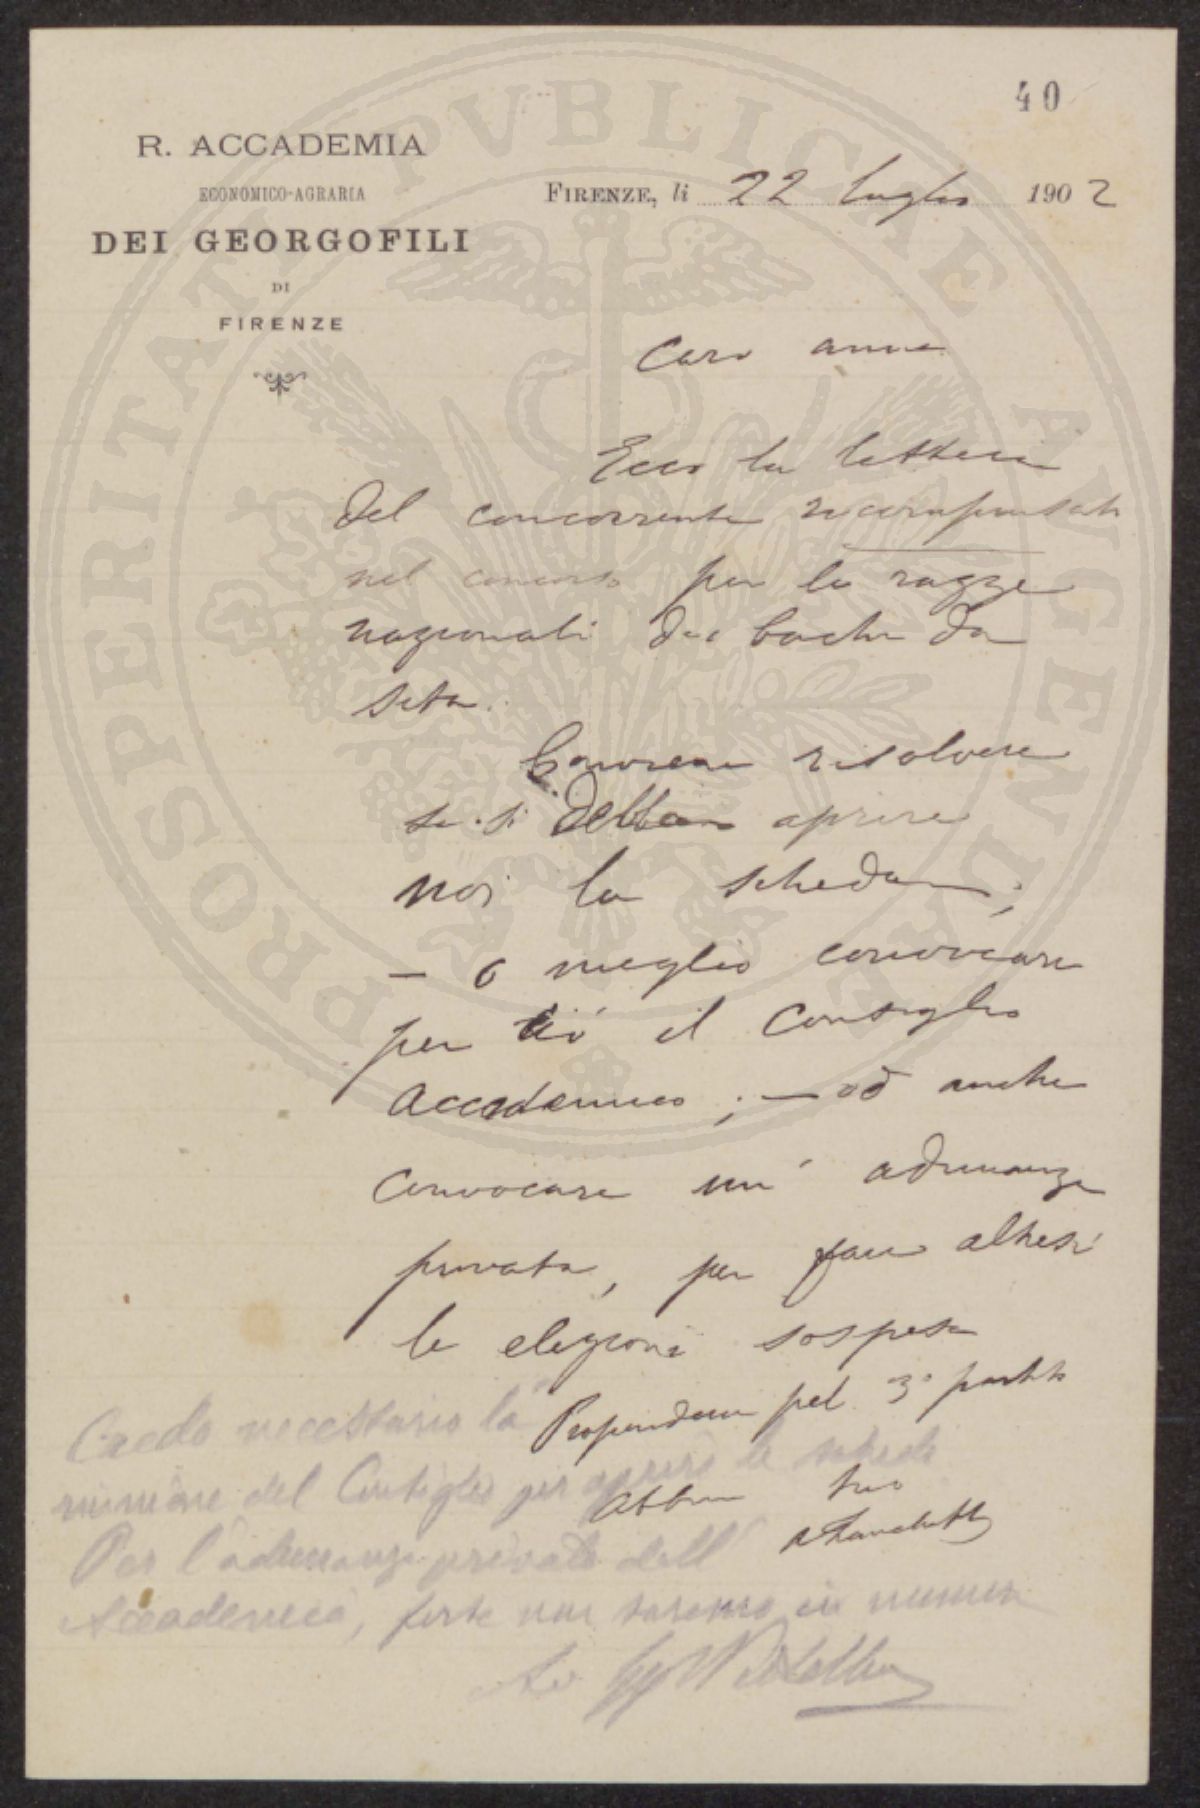 40
R. ACCADEMIA
ECONOMICO-AGRARIA
DEI GEORGOFILI
DI
FIRENZE
FIRENZE, li 22 luglio 1902
Caro amico
Ecco la lettera
del concorrente ricompensato
nel concorso per le razze
nazionali dei bachi da
seta.
Converrà risolvere
se si debba aprire
noi la scheda;
— o meglio convocare
per ciò il Consiglio
Accademico; — od anche
convocare un' adunanza
privata, per fare altresì
le elezioni sospese
Propenderei pel 3º partito
aff.mo tuo
Credo necessario la
riunione del Consiglio per aprire le schede
Per l'adunanza privata dell'
Accademia, forse non saremo in numero
PROSPERITATI PVBLICAE AVGENDAE